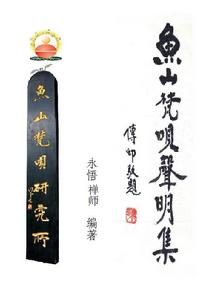 魚山梵唄聲明集
傳印敬題
永悟 禅师 编著
魚山梵唄研究所